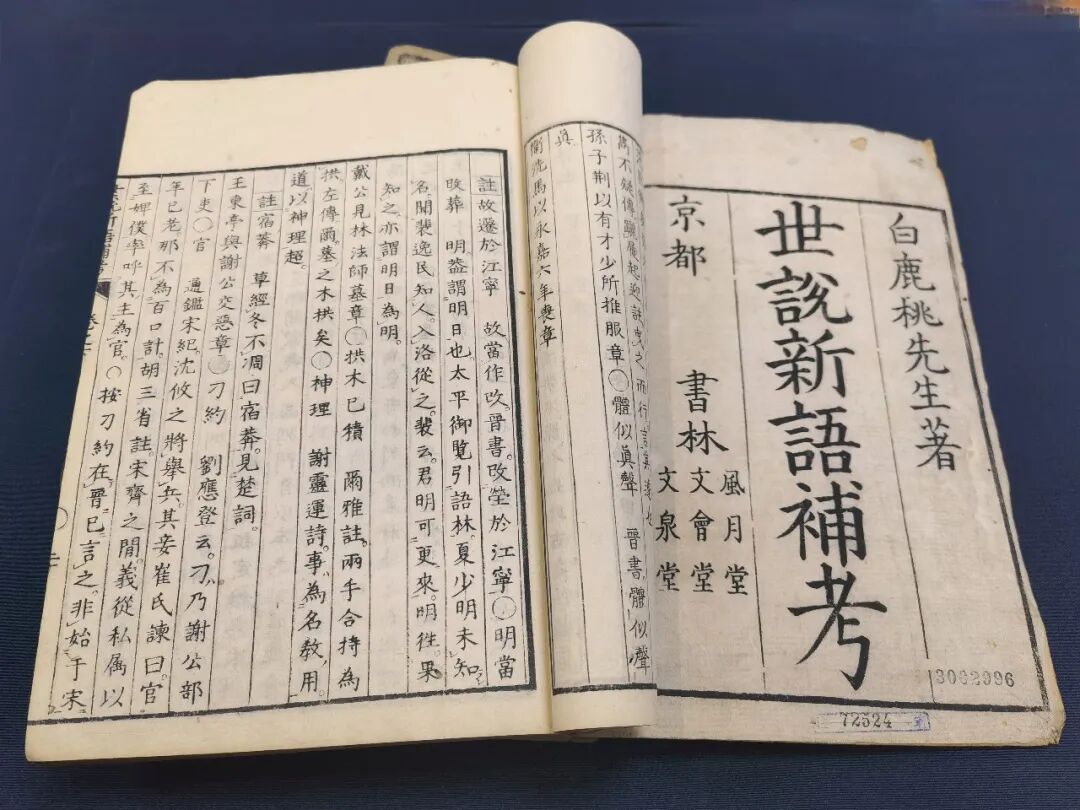 白鹿桃先生著
世說新語補考
京都 書林
風月堂
文會堂
文泉堂
3092996
72524
孫子荊以有才少所推服章○體似眞聲 晉書體似聲
眞
衛洗馬以永嘉六年喪章
註故遷於江寧 故當作改晉書改塋於江寧○明當
改葬 明蓋謂明日也太平御覽引語林夏少明未知
名聞裴逸民知人入洛從之裴云君明可更來明往果
知之亦謂明日為明
戴公見林法師墓章○拱木已積 爾雅註兩手合持為
拱左傳爾墓之木拱矣○神理 謝靈運詩事為名教用
道以神理超
註宿莽 草經冬不凋曰宿莽見楚詞
王東亭與謝公交惡章○刁約 劉應登云刁乃謝公部
下吏○官 通鑑宋紀沈攸之將舉兵其妾崔氏諫曰官
年已老那不為百口計胡三省註宋齊之間義從私属以
至婢僕率呼其主為官○按刁約在晉已言之非始于宋